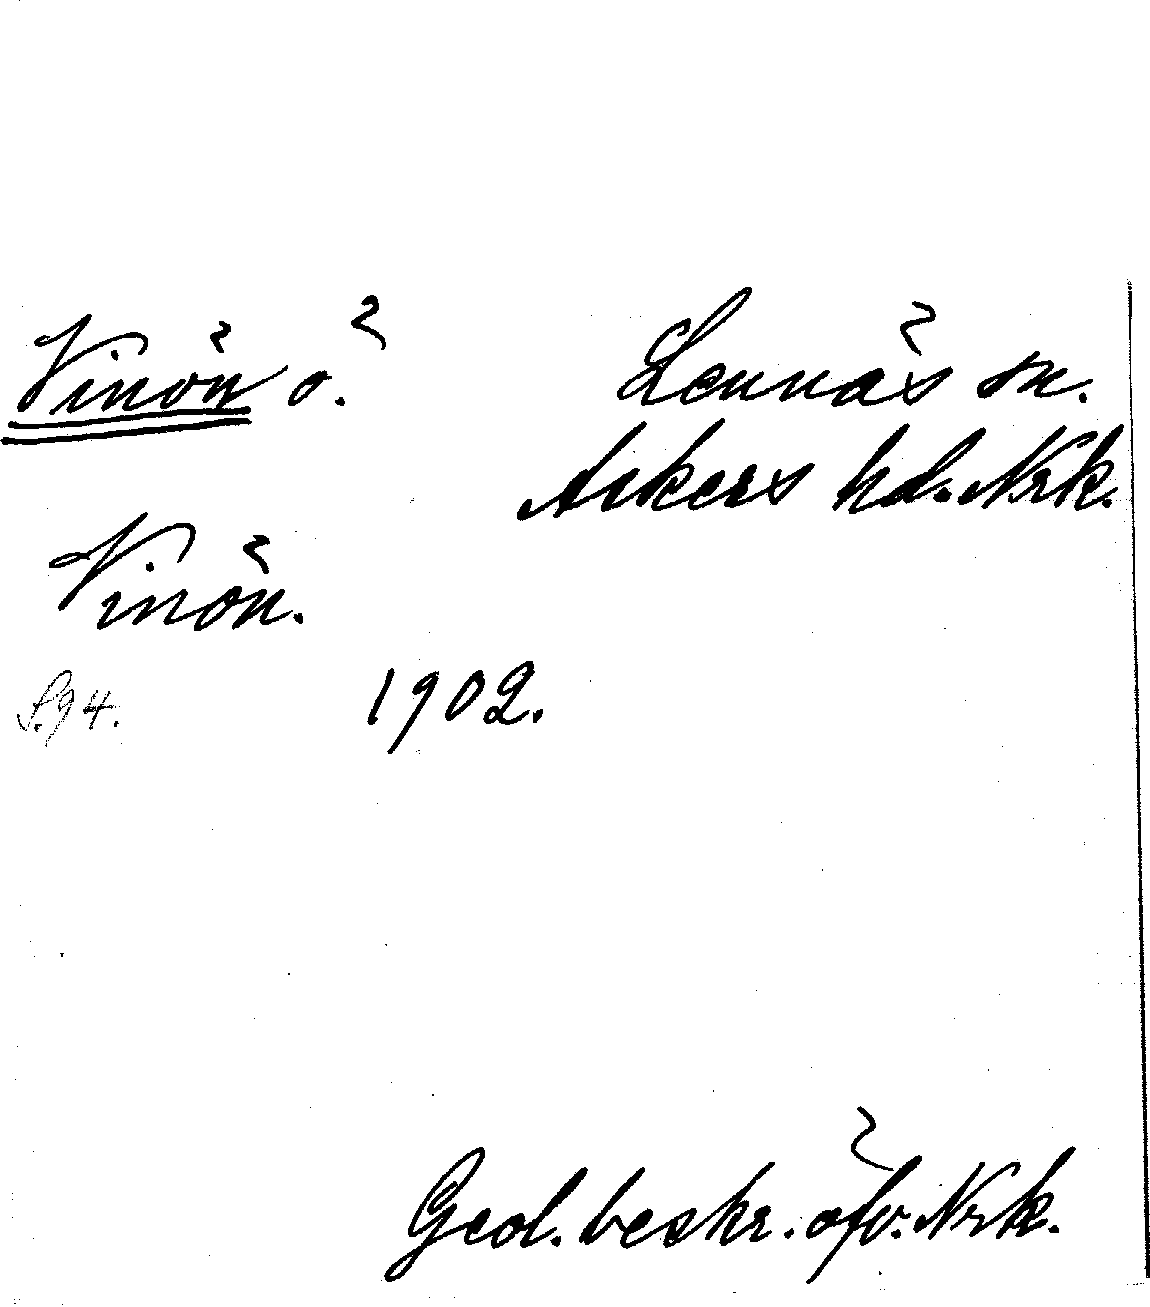 Vinön ö.
Lännäs sn.
Askers hd. Nrk.
Vinön.
S. 94.
1902.
Geol. beskr. öfv. Nrk.